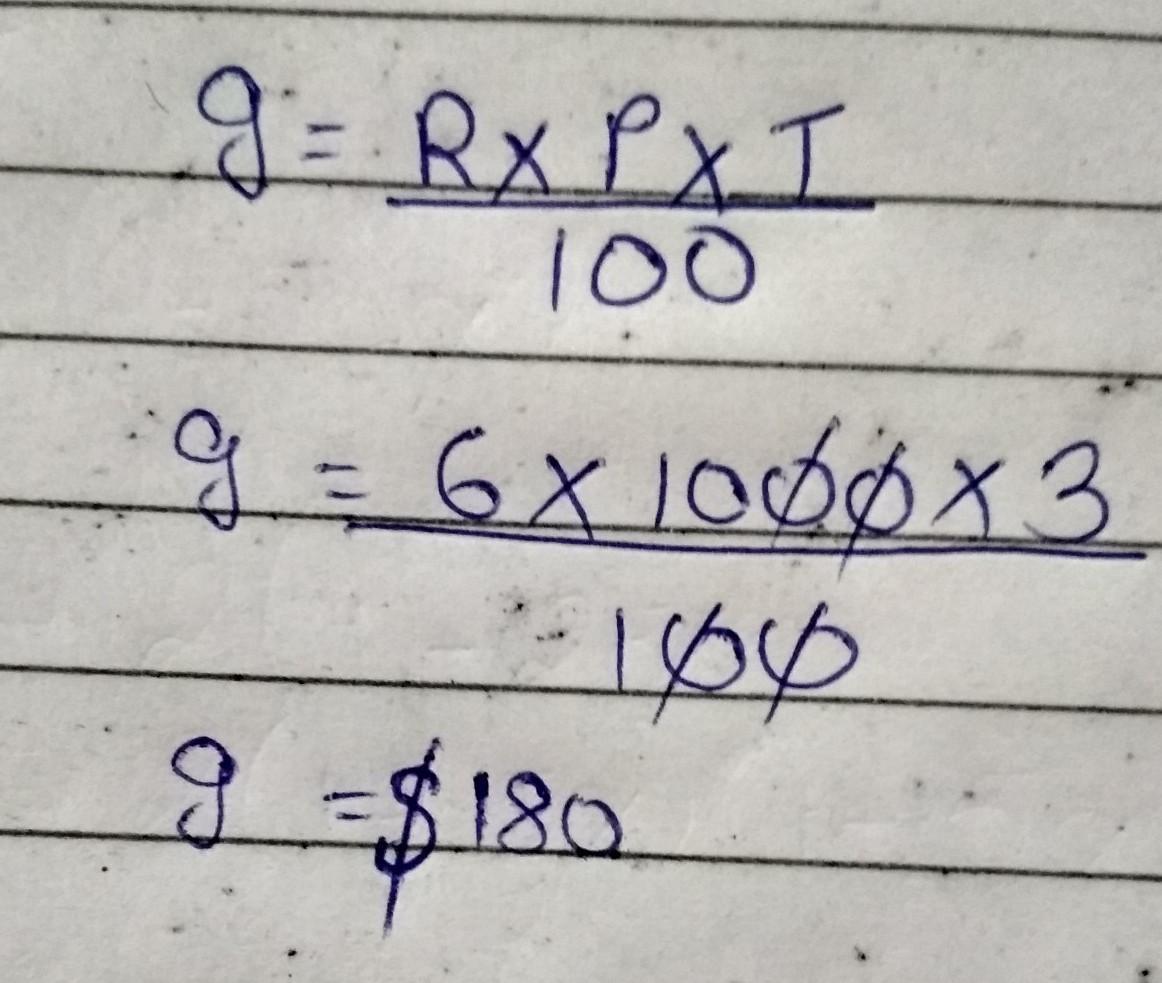 g = R x P x T
100
g = 6 x 1000 x 3
100
g = $180